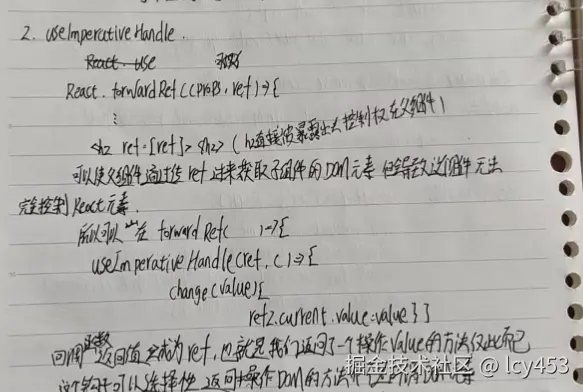 2. useImperativeHandle.
React. use
React. forwardRef((props, ref)=>{
⋮
<h2 ref={ref}> <h2> (h2直接被暴露出去控制权在父组件)
可以使父组件通过传ref进来获取子组件的DOM元素 但导致这组件无法
完全控制React元素.
所以可以 在 forwardRef( )=>{
useImperativeHandle(ref, ()=>{
change(value){
ref2.current.value=value}}
回调函数返回值会成为ref, 也就是我们返回了一个操作value的方法仅此而已
可以选择性 返回操作DOM的方法
掘金技术社区 @ lcy453